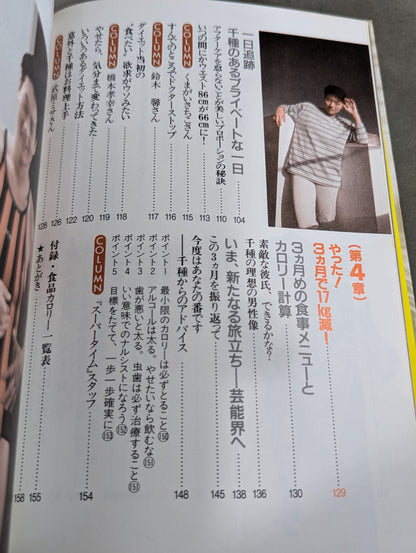 一日追跡
千種のあるプライベートな一日……104
アフターケアを怠らないことが美しいプロポーションの秘訣……110
いつの間にかウエスト86cmが66cmに!……113
COLUMN くまがいさちこさん……115
すんでのところでドクターストップ……116
COLUMN 鈴木 馨さん……117
ダイエット当初の
“食べたい”欲求がウソみたい……118
COLUMN 橋本孝幸さん……119
やせたら、気分まで変わってきた……120
いろいろあるぞダイエット方法……122
意外と千種はお料理上手……126
COLUMN さん……128
(第4章)
やった!
3ヵ月で17kg減!……129
3ヵ月めの食事メニューと
カロリー計算……130
素敵な彼氏、できるかな?
千種の理想の男性像……136
いま、新たなる旅立ち—芸能界へ……138
この3ヵ月を振り返って……145
今度はあなたの番です
——千種からのアドバイス……148
ポイント1 最小限のカロリーは必ずとること(150)
ポイント2 アルコールは太る。やせたいなら飲むな(151)
ポイント3 歯が悪いと太る。虫歯は必ず治療すること(151)
ポイント4 いい意味でのナルシストになろう(152)
ポイント5 目標をたてて、一歩一歩確実に(153)
COLUMN 「スーパータイム」スタッフ……154
付録・食品カロリー一覧表……155
★あとがき……158